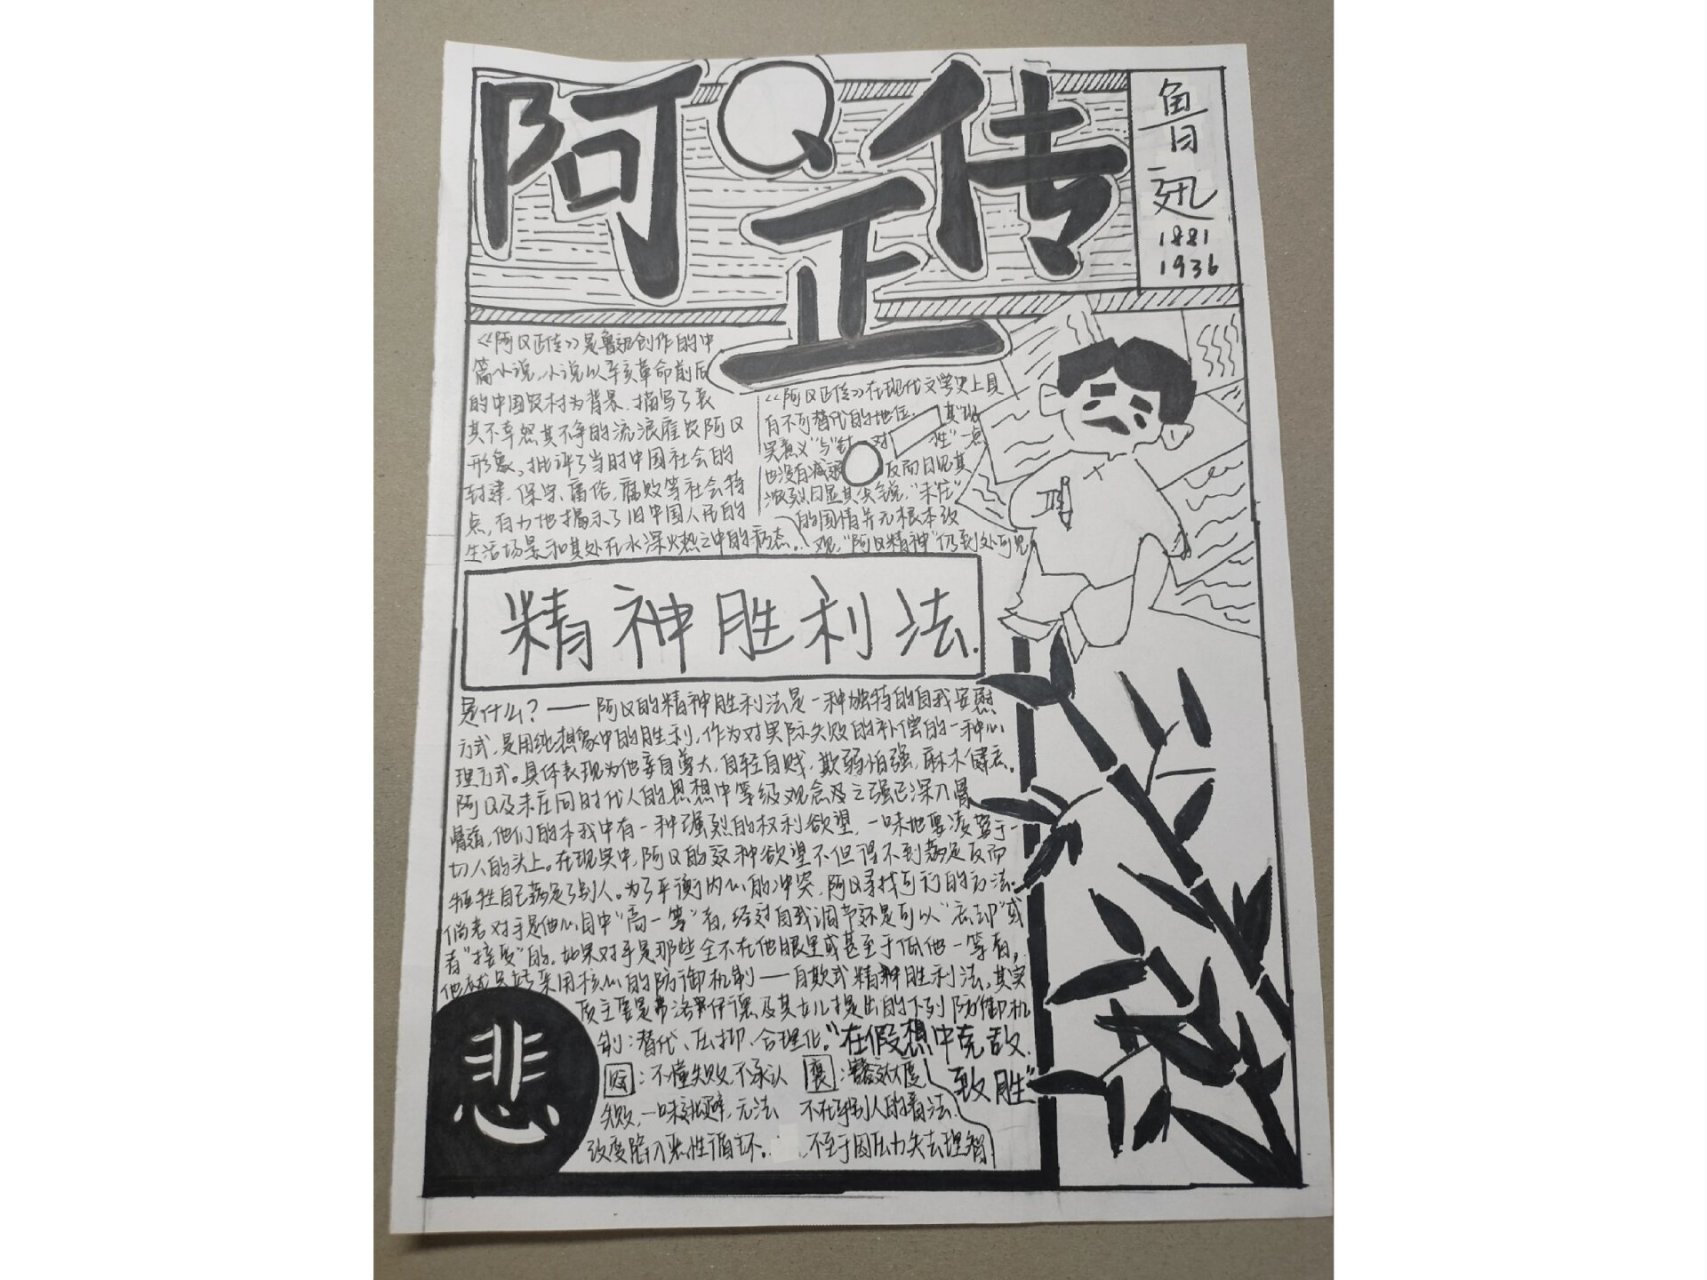 阿Q正传
鲁迅
1881
1936
《阿Q正传》是鲁迅创作的中
篇小说,小说以辛亥革命前后
的中国农村为背景,描写了哀
其不幸怒其不争的流浪雇农阿Q
形象,批评了当时中国社会的
封建,保守,庸俗,腐败等社会特
点,有力地揭示了旧中国人民的
生活场景和其处在水深火热之中的病态。
《阿Q正传》在现代文学史上具
有不可替代的地位,其"现
实意义"与"针 对 性"一点
也没有减弱 反而日见其
浓烈日显其尖锐,"未庄"
的国情并无根本改
观,"阿Q精神"仍到处可见
精神胜利法.
是什么?——阿Q的精神胜利法是一种独特的自我安慰
方式,是用纯想象中的胜利,作为对实际失败的补偿的一种心
理方式。具体表现为他妄自尊大,自轻自贱,欺弱怕强,麻木健忘。
阿Q及未庄同时代人的思想中等级观念及之强已深入骨
髓,他们的本我中有一种强烈的权利欲望,一味地要凌驾于一
切人的头上。在现实中,阿Q的这种欲望不但得不到满足反而
牺牲自己满足了别人。为了平衡内心的冲突,阿Q寻找可行的方法。
倘若对手是他心目中"高一等"者,经过自我调节还是可以"忘却"或
者"接受"的。如果对手是那些全不在他眼里或甚至于低他一等者,
他就只好采用核心的防御机制——自欺式精神胜利法,其实
质主要是弗洛伊德及其女儿提出的下列防御机
制:替代、压抑、合理化。"在假想中克敌
致胜"
贬:不懂失败,不承认
失败,一味逃避,无法
改变陷入恶性循环。
褒:豁达大度
不在乎别人的看法.
不至于因压力失去理智
悲